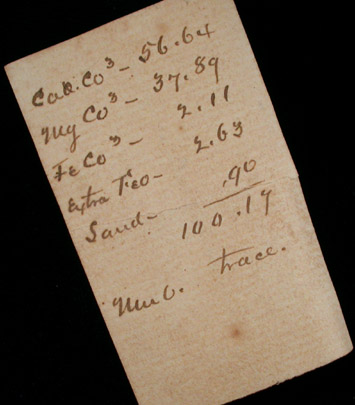 CaO.CO³ – 56.64
Mg CO³ – 37.89
Fe CO³ – 2.11
Extra FeO – 2.63
Sand – .90
100.17
MnO. trace.